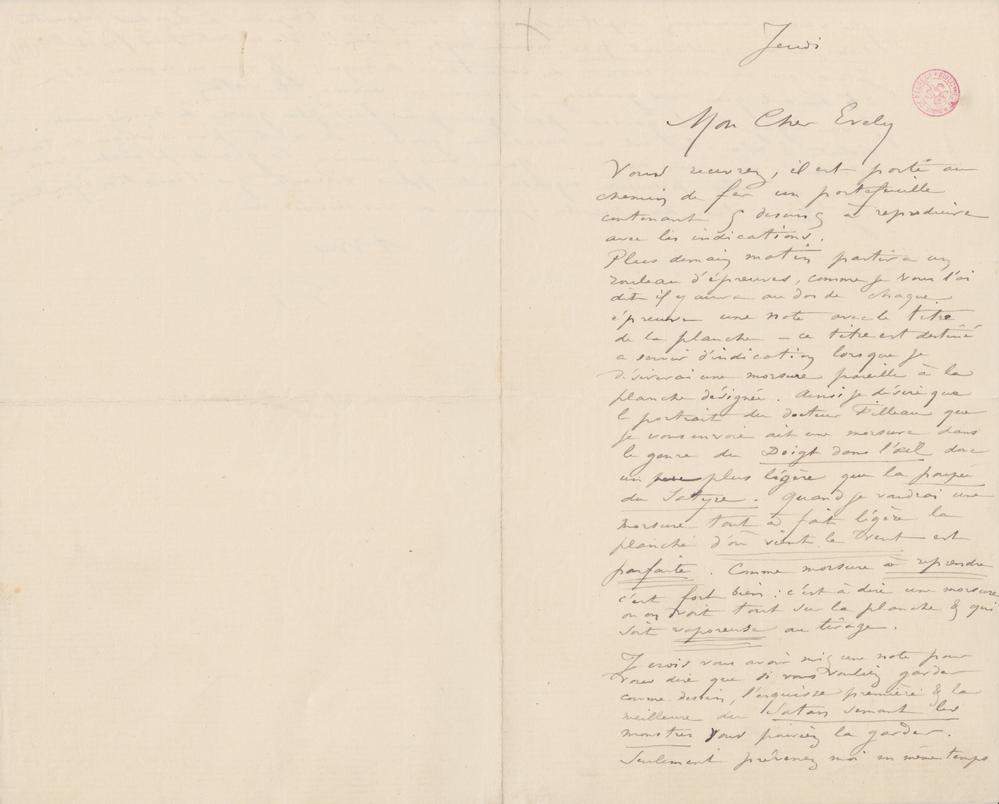 Jeudi
Mon Cher Evely
Vous recevrez, il est porté au
chemin de fer un portefeuille
contenant 5 dessins à reproduire
avec les indications.
Plus demain matin partira un
rouleau d'épreuves, comme je vous l'ai
dit il y aura au dos de chaque
épreuve une note avec le titre
de la planche – ce titre est destiné
a servir d'indication lorsque je
désirerai une morsure pareille à la
planche désignée. Ainsi je désire que
l portrait du docteur Filleau que
je vous envoie ait une morsure dans
le genre du Doigt dans l'œil donc
un peu plus légère que la poupée
du Satyre. Quand je voudrai une
morsure tout à fait légère la
planche d'où vient le Vent est
parfaite. Comme morsure à reprendre
c'est fort bien : c'est à dire une morsure
où on voit tout sur la planche & qui
soit vaporeuse au tirage.
Je crois vous avoir mis une note pour
vous dire que si vous vouliez garder
comme dessin, l'esquisse première & la
meilleure du Satan semant les
monstres vous pouviez la garder.
Seulement prévenez moi en même temps